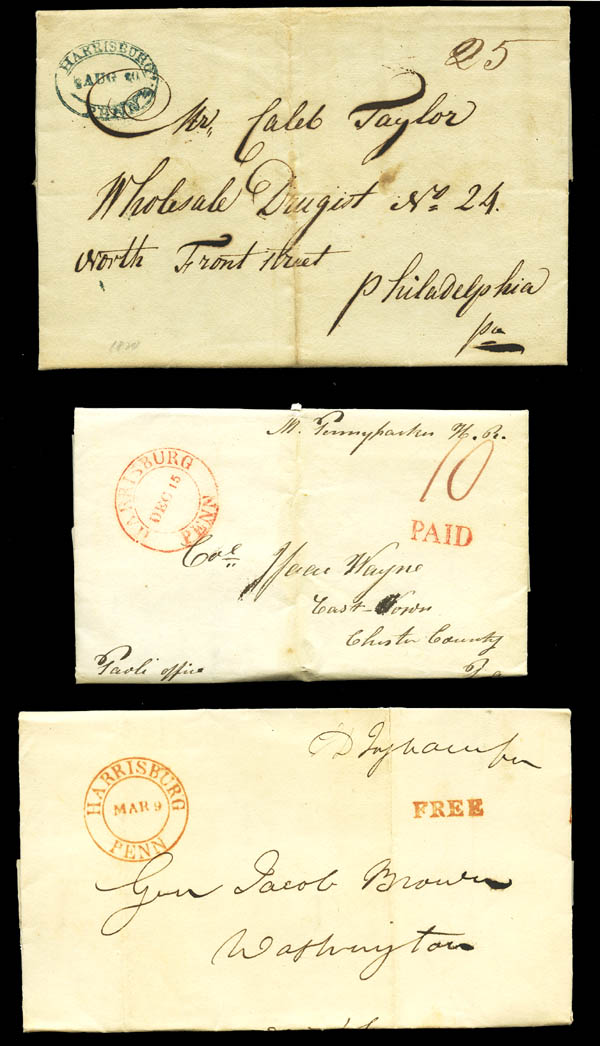 HARRISBURG
AUG 20
PENN
25
Mr. Caleb Taylor
Wholesale Drugist No. 24.
North Front street
Philadelphia
pa
1820
M. Pennypacker H. R.
HARRISBURG
DEC 15
PENN
10
PAID
Col. Isaac Wayne
East-Town
Chester County
Pa
Paoli office
HARRISBURG
MAR 9
PENN
FREE
Gen Jacob Brown
Washington